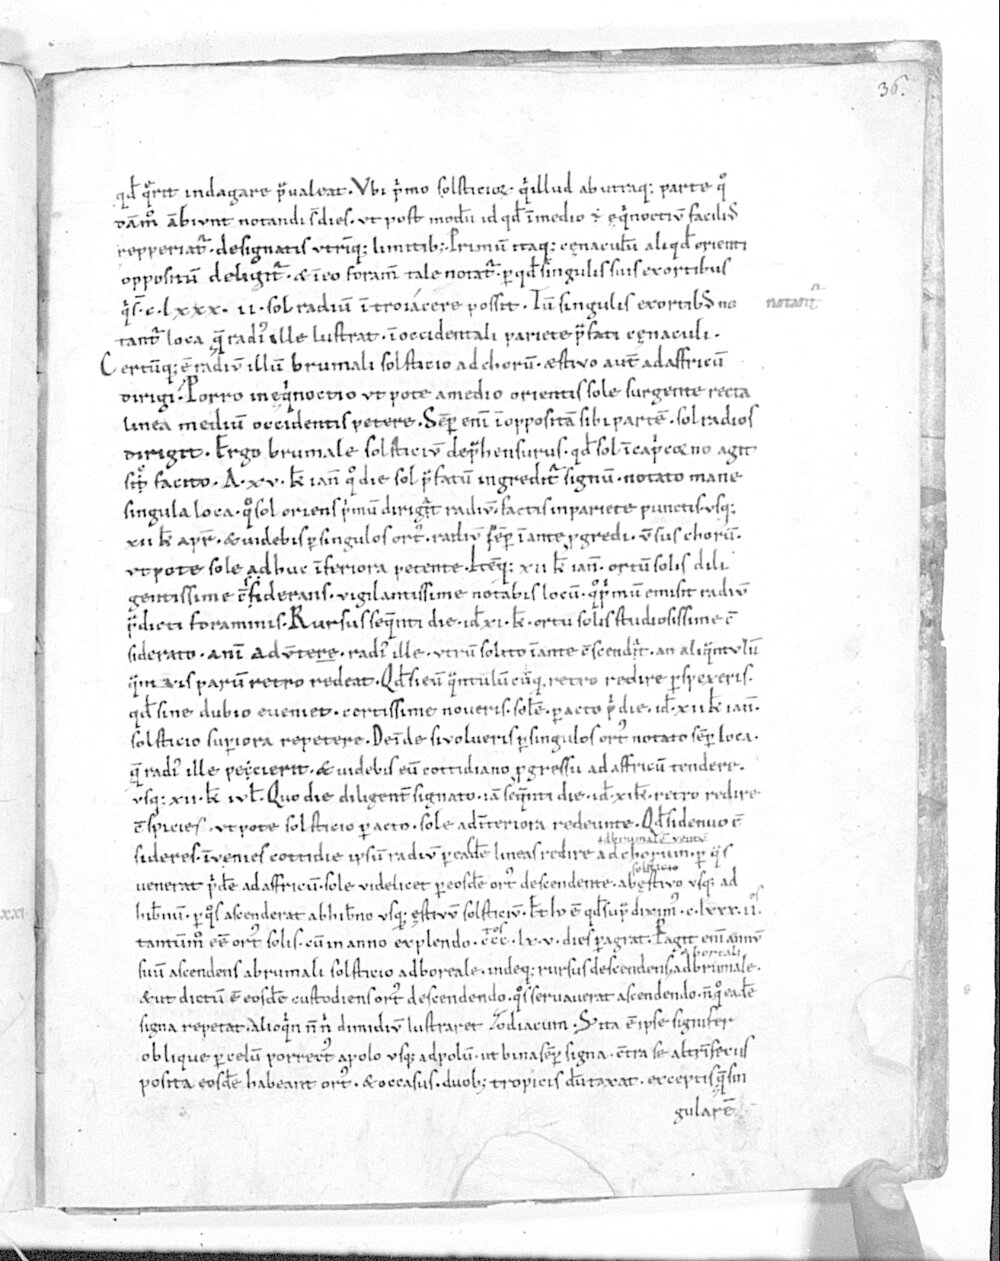 36.
qd̄ q̄rit indagare p̄ualeat. Vbi p̄mo solsticioꝝ. q̄ illud ab utraq; parte q°
dām° ābiunt notandi s̄ dies. ut post modū id qd̄ ī medio ÷ eq̄noctiū facili᷒
repperiat᷑. designatis utrīq; limitib; Primū itaq; cęnaculū aliqd̄ orienti
oppositū deligit᷑. & ī eo foram̄ tale notat᷑. p qd̄ singulis suis exortibus
q̄ s̄. c. lxxx. ii. sol radiū ītroiácere possit. Tū singulis exortib᷒ no
notant᷑
tant᷑ loca q̄ radi᷒ ille lustrat. ī occidentali pariete p̄fati cęnaculi.
Certūq; ē radiū illū brumali solsticio ad chorū. ęstiuo aut̄ ad affricū
dirigi. Porro in eq̄noctio ut pote a medio orientis sole surgente recta
linea mediū occidentis petere. Sēp enī ī oppositā sibi partē. sol radios
dirigit. Ergo brumale solsticiū dep̄hensurus. qd̄ sol ī cap̄coꝛno agit
sic facito. A. xv. k̄ ian̄ q° die sol p̄fatū ingredit᷑ signū. notato mane
singula loca. q° sol oriens p̄mū dirigit radiū. factis in pariete punctis. usq;
xii k̄ apr̄. & uidebis p singulos ort᷒. radiū sēp ī ante p̄gredi. ūsus chorū.
ut pote sole adhuc īferiora petente. Itēq; xii k̄ ian̄. ortū solis dili
gentissime c̄siderans. uigilantissime notabis locū. q° p̄mū emisit radiū
p̄dicti foraminis. Rursus seq̄nti die. id ē xi. k̄. ortū solis studiosissime c̄
siderato. anī aduertere. radi᷒ ille. utrū solito ī ante c̄scendit. an aliq̄ntulū
q̄m uis parū retro redeat. Qd̄ si eū q̄ntulūcūq; retro redire pspexeris.
qd̄ sine dubio eueniet. certissime noueris. solē. pacto p̄die. id ē. xii k̄ ian̄.
solsticio supiora repetere. Deīde si uolueris p singulos ort᷒ notato sēp loca.
q̄ radi᷒ ille peiecerit. & uidebis eū cottidiano p̄gressu ad affricū tendere.
usq; xii. k̄ iul̄. Quo die diligent᷑ signato. iā seq̄nti die. id ē xi k̄. retro redire
c̄spicies. ut pote solsticio pacto. sole ad īteriora redeunte. Qd̄ si denuo c̄
ad brumalē uentū
sideres. īuenies cottidie ipsū radiū p easdē lineas redire ad chorum. p q̄s
solsticio
uenerat p̄de ad affricū. sole uidelicet p eosdē ort᷒ descendente. ab ęstiuo usq; ad
hib̄nū. p q°s ascenderat ab hib̄no usq; ęstiuū solsticiū. Et h̄ ē qd̄ sup̄ dixim᷒. c. lxxx. ii.os
tantūm° eē ort᷒ solis. cū in anno explendo. ccc.tos lx. v. dies pagrat. Pagit enī annū
a boreali
suū ascendens a brumali solsticio ad boreale. indeq; rursus descendens. ad brumale.
& ut dictū ē eosdē custodiens ort᷒ descendendo. q°s seruauerat ascendendo. n̄q° eadē
signa repetat. alioq̄n n̄ n̄ dimidiū lustraret Zodiacum. S; ita ē ipse signifer
oblique p celū porrect᷒ a polo usq; ad polū. ut bina sēp signa. c̄tra se altrīsecus
posita eosdē habeant ort᷒. & occasus. duob; tropicis dūtaxat. exceptis q̄ sin
gularē